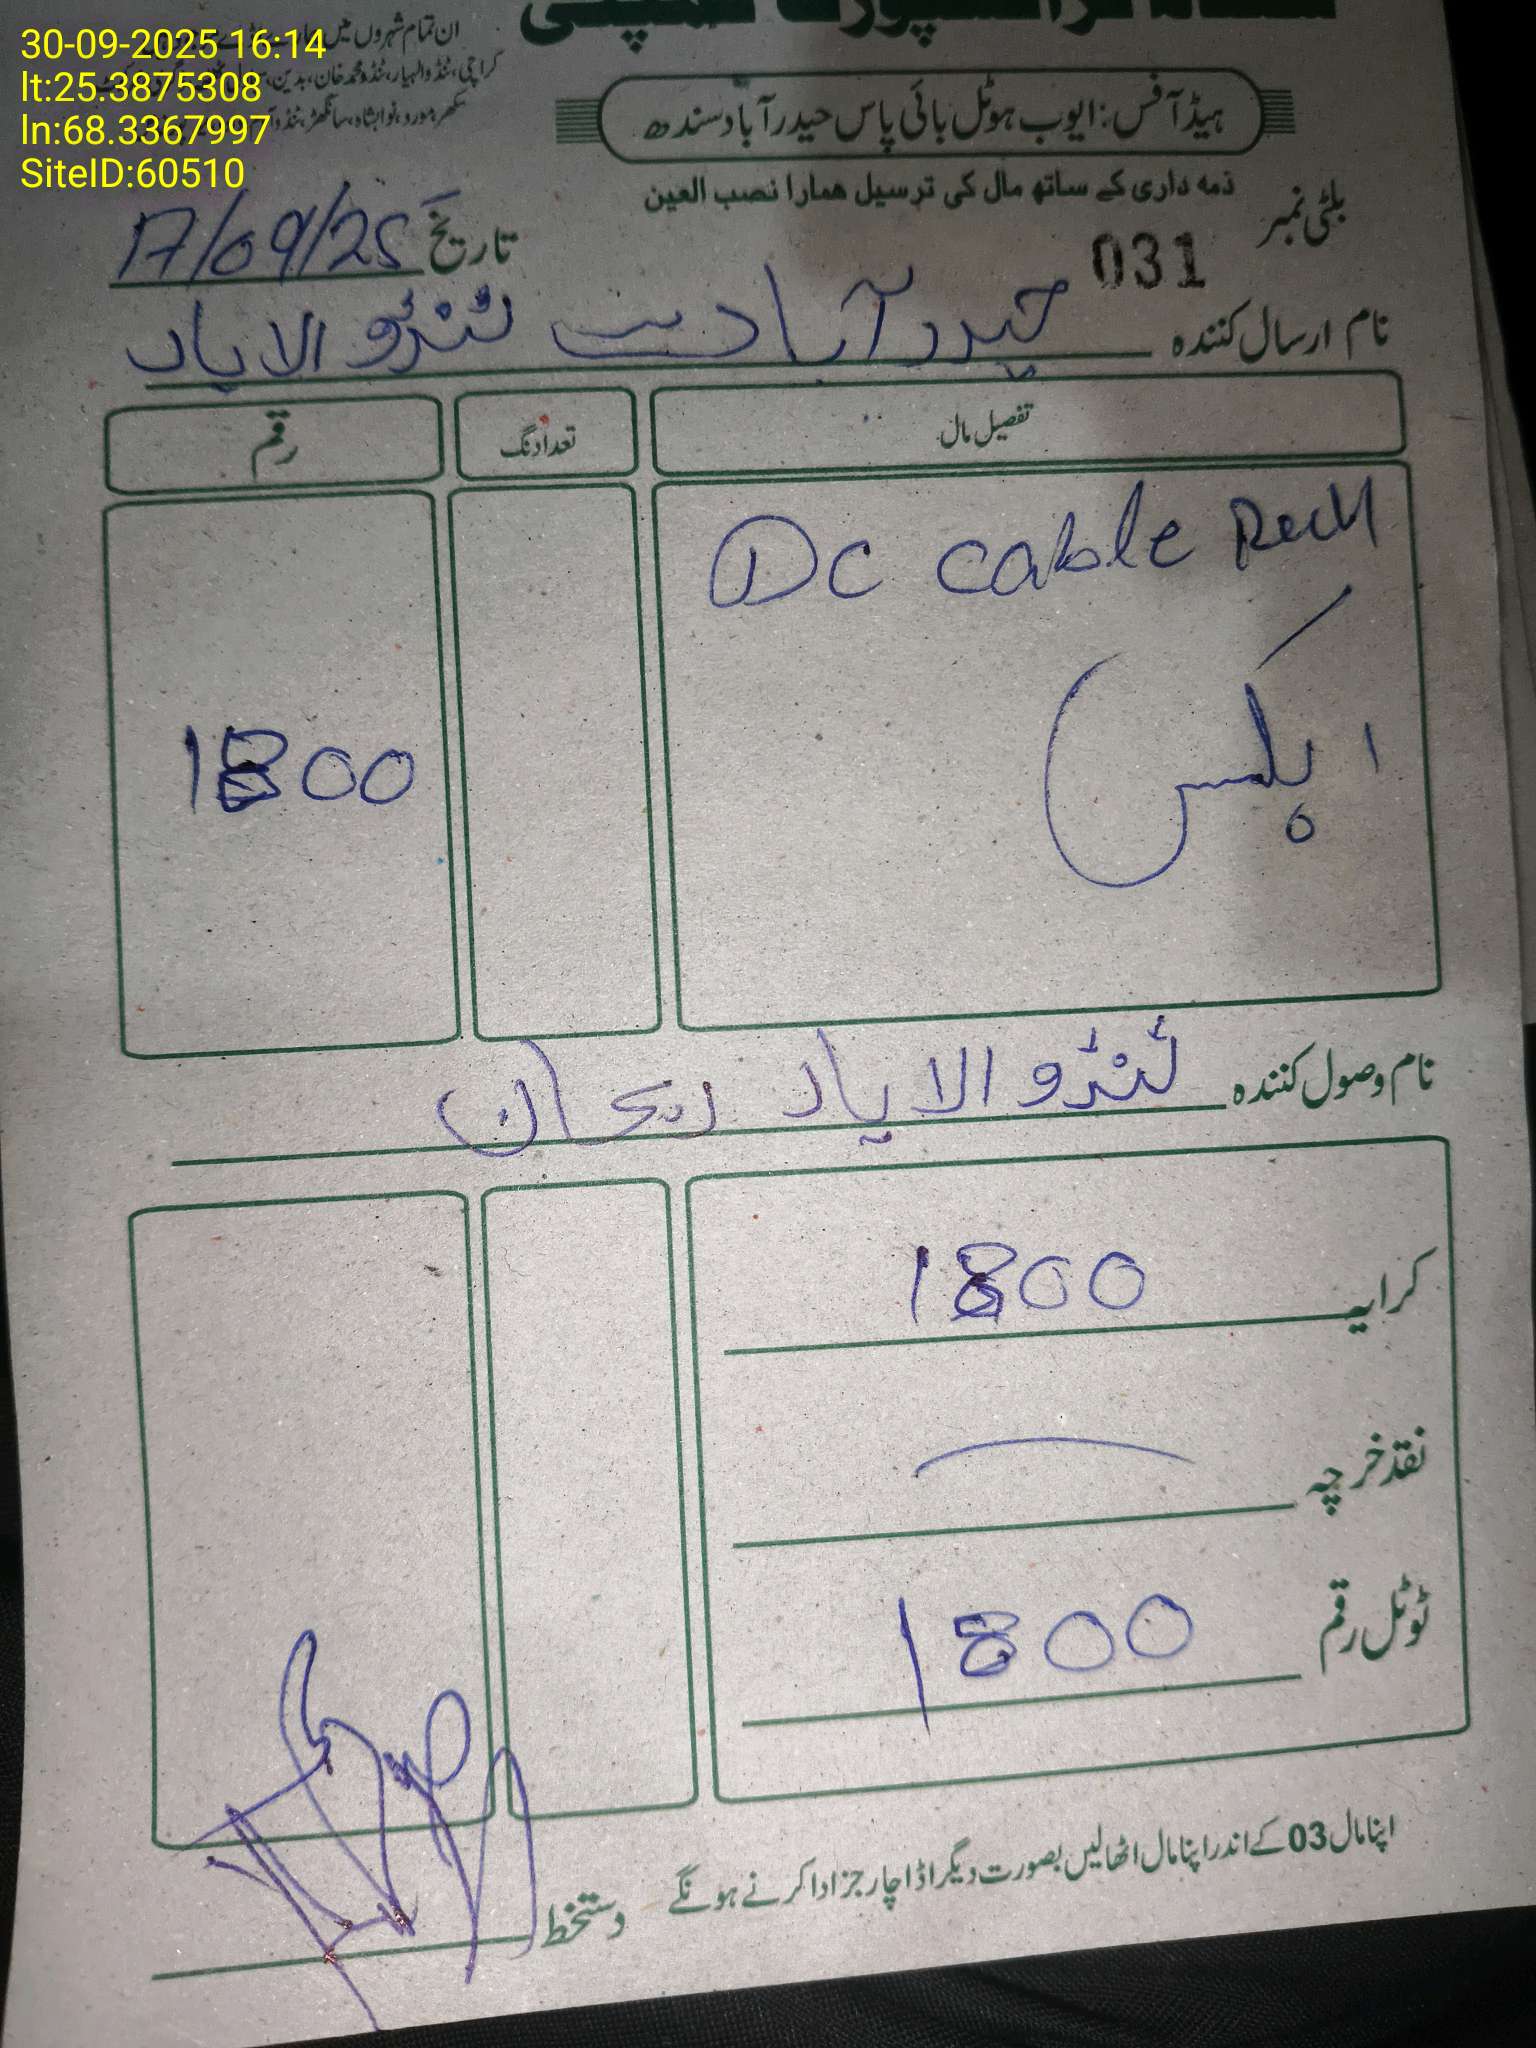 30-09-2025 16:14
lt:25.3875308
ln:68.3367997
SiteID:60510
ان تمام شہروں میں
کراچی، ٹنڈوالہیار، ٹنڈو محمد خان، بدین،
سکھر، مورو، نوابشاہ، سانگھڑ،
ہیڈ آفس: ایوب ہوٹل بائی پاس حیدرآباد سندھ
ذمہ داری کے ساتھ مال کی ترسیل ہمارا نصب العین
بلٹی نمبر 031
تاریخ 17/09/25
نام ارسال کنندہ حیدرآباد سے ٹنڈو الا یار
تفصیل مال تعداد نگ رقم
DC cable
1 بکس
1800
نام وصول کنندہ ٹنڈو الا یار ریحان
کرایہ 1800
نقد خرچہ
ٹوٹل رقم 1800
اپنا مال 03 کے اندر اپنا مال اٹھالیں بصورت دیگر اڈا چارجز ادا کرنے ہونگے
دستخط